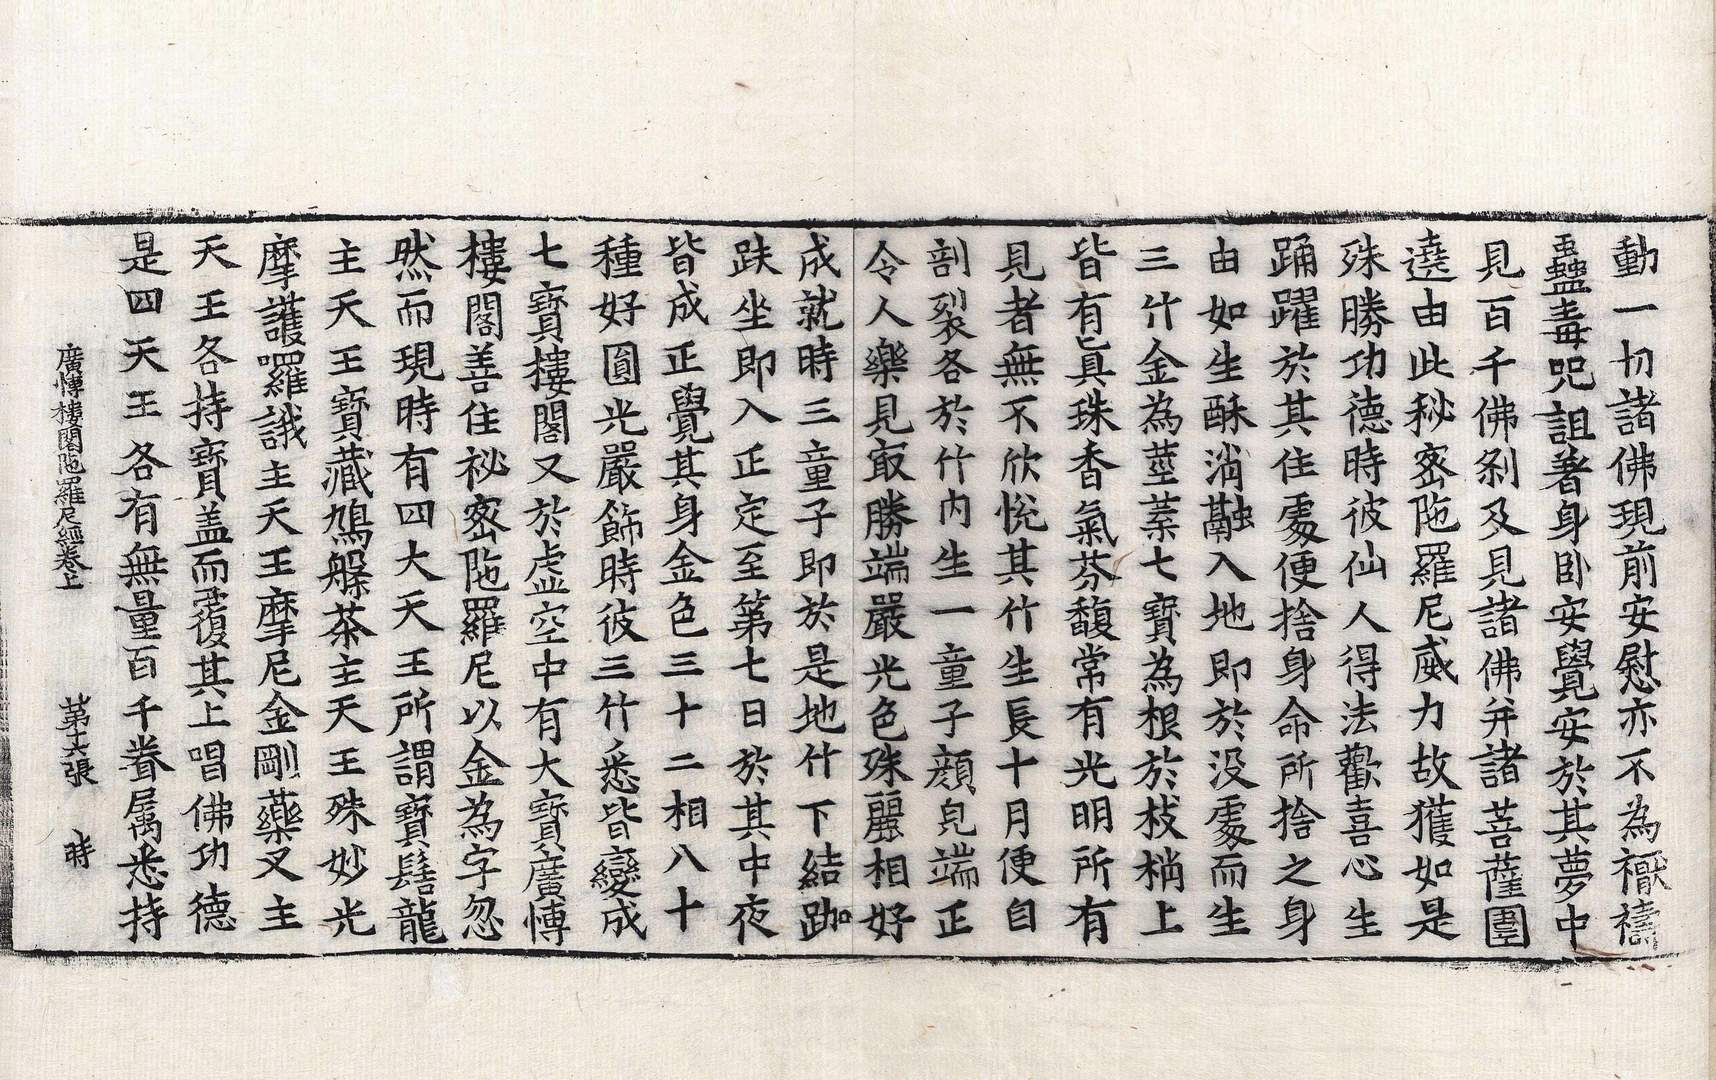 動一切諸佛現前安慰亦不為禳禱
蠱毒呪詛著身卧安覺安於其夢中
見百千佛刹及見諸佛并諸菩薩圍
遶由此秘密陁羅尼威力故獲如是
殊勝功德時彼仙人得法歡喜心生
踊躍於其住處便捨身命所捨之身
由如生酥消融入地即於没處而生
三竹金為莖葉七寶為根於枝梢上
皆有真珠香氣芬馥常有光明所有
見者無不欣悅其竹生長十月便自
剖裂各於竹内生一童子顔皃端正
令人樂見㝡勝端嚴光色殊麗相好
成就時三童子即於是地竹下結跏
趺坐即入正定至第七日於其中夜
皆成正覺其身金色三十二相八十
種好圓光嚴飾時彼三竹悉皆變成
七寶樓閣又於虛空中有大寶廣愽
樓閣善住祕密陁羅尼以金為字忽
然而現時有四大天王所謂寶髻龍
主天王寶藏鳩槃茶主天王殊妙光
摩護囉誐主天王摩尼金剛藥叉主
天王各持寶盖而覆其上唱佛功德
是四天王各有無量百千眷属悉持
廣愽樓閣陁羅尼經卷上 第十六張 時